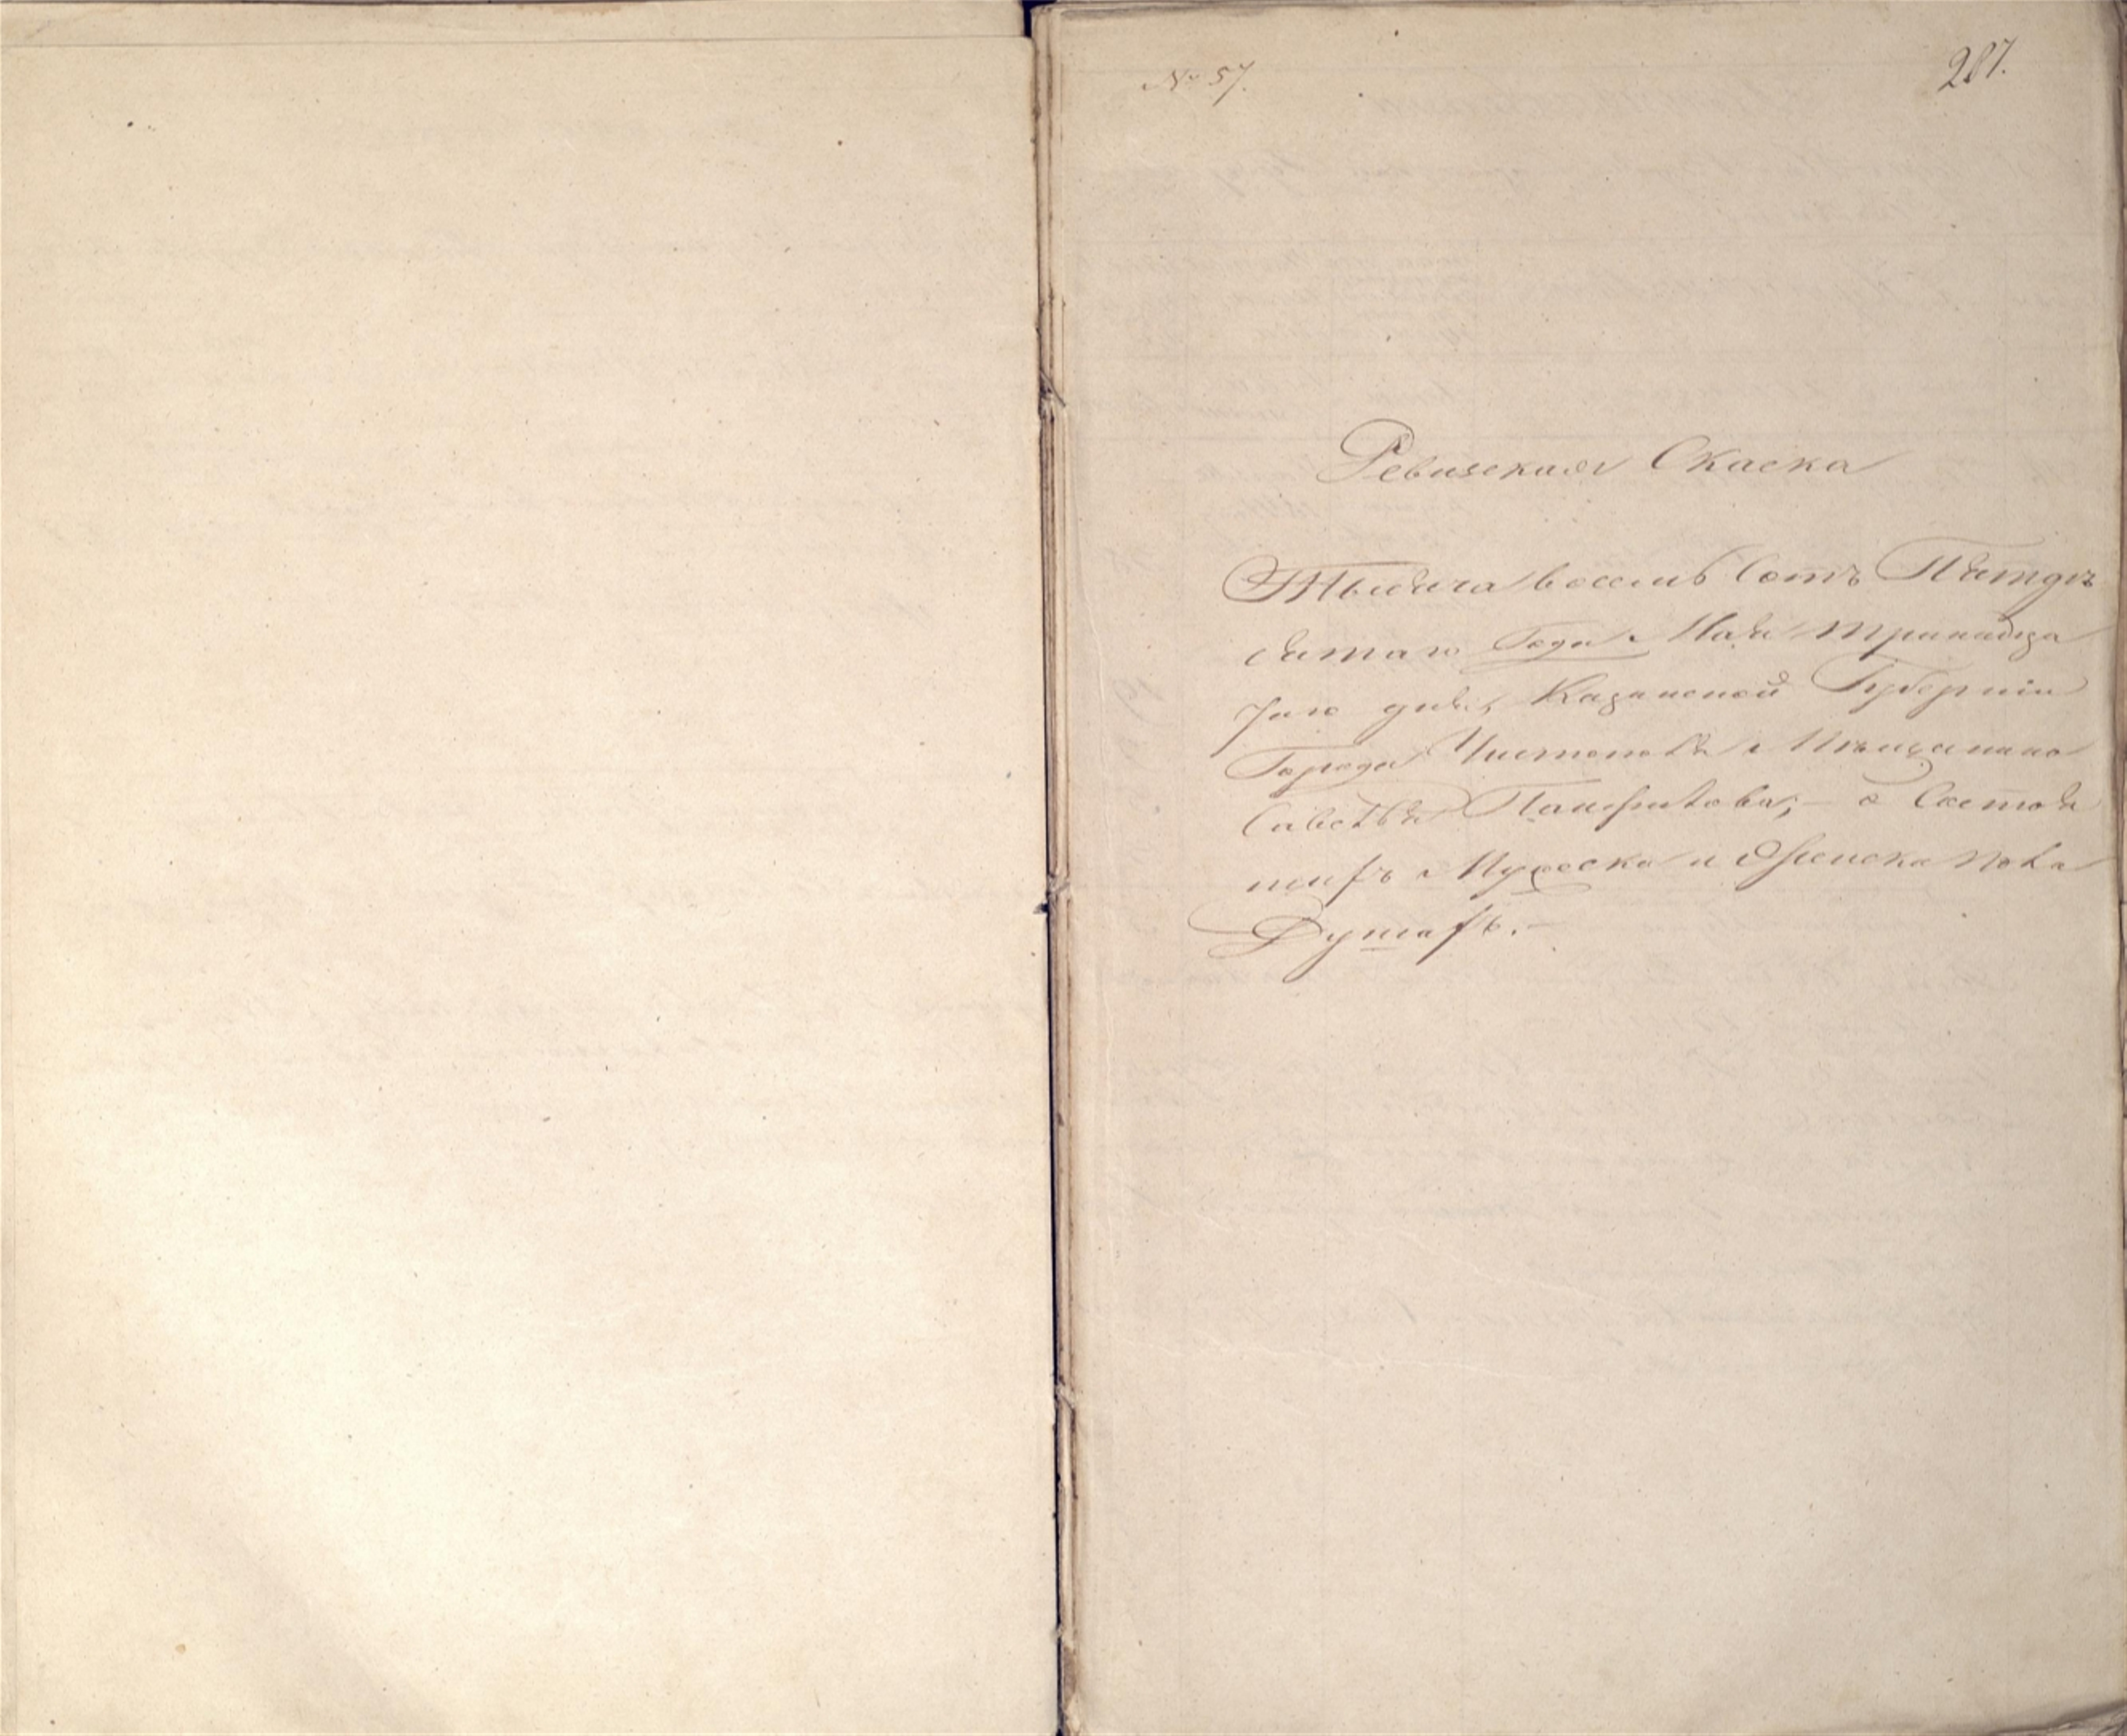 № 57.
287.
Ревизская Скаска
Тысяча восемь Сотъ Пятдъ
сятаго Года Маія тринадца
таго дня, Казанской Губерніи
Города Чистополя Мещанина
Савелья Панфилова; о Состоя
щихъ Мужеска и Женска пола
Душахъ.